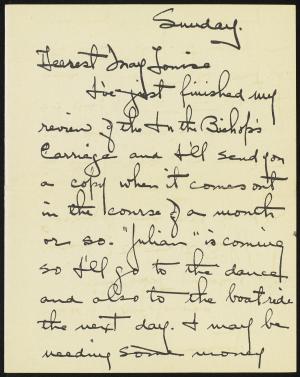 Sunday.
Dearest May Louise
I've just finished my
review of the In the Bishop's
Carriage and I'll send you
a copy when it comes out
in the course of a month
or so. "Julian" is coming
so I'll go to the dance
and also to the boatride
the next day. I may be
needing some money